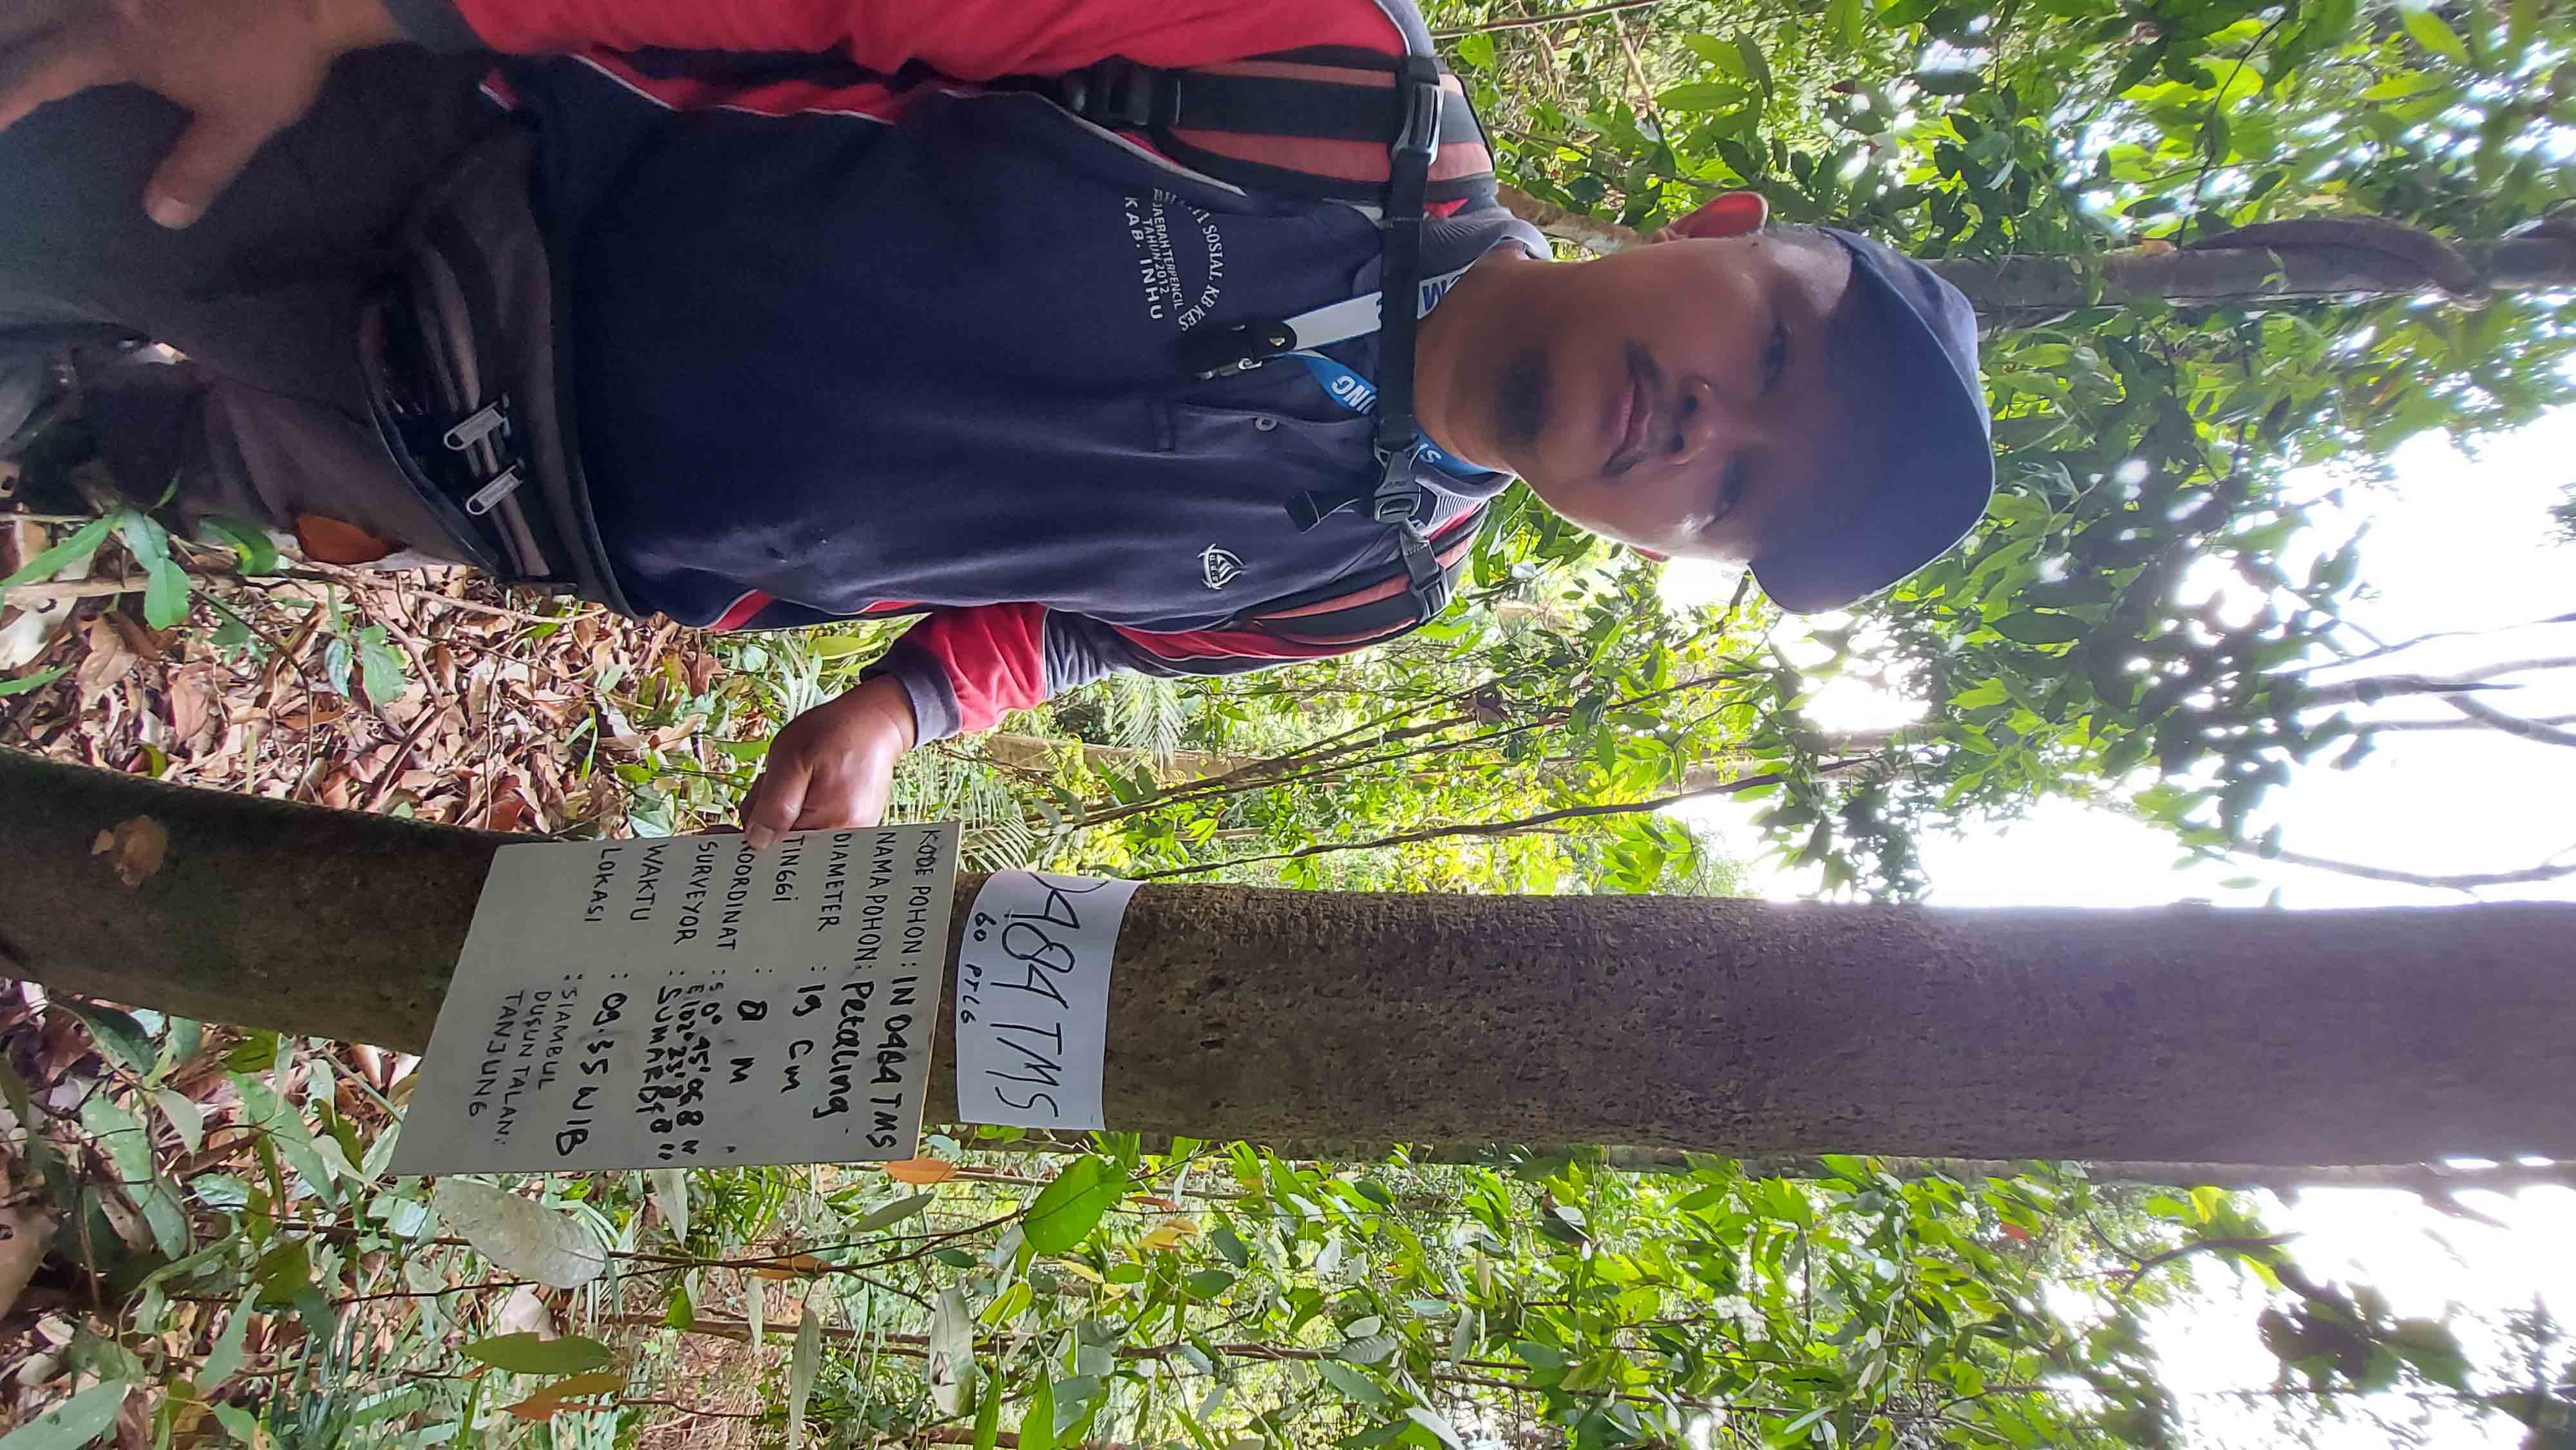 SOSIAL KB KES
DAERAH TERPENCIL
TAHUN 2012
KAB. INHU
UNG
0484 TMS
60 PTLG
KODE POHON : IN 0484 TMS
NAMA POHON : Petaling
DIAMETER : 19 Cm
TINGGI : 8 M
KOORDINAT : S 0° 45' 06 8 "
E 102° 23'
SURVEYOR : SUMARDI
WAKTU : 09.35 WIB
LOKASI : SIAMBUL
DUSUN TALAN
TANJUNG